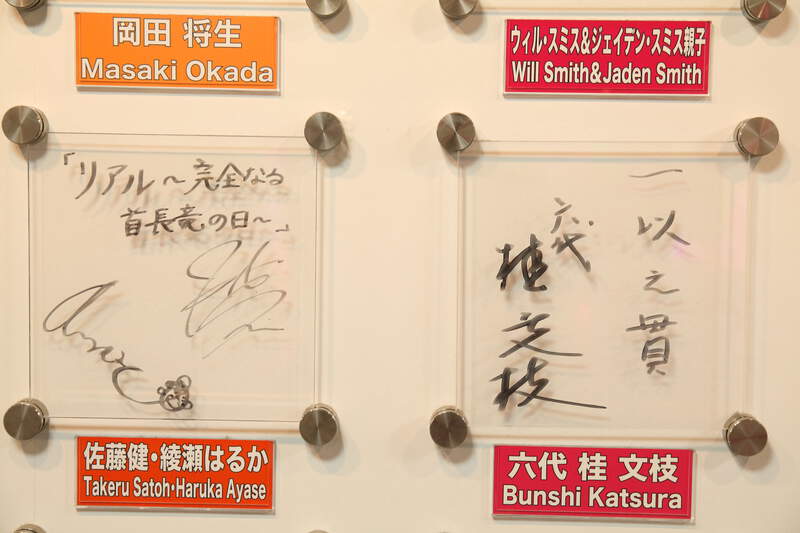 岡田 将生
Masaki Okada
ウィル・スミス&ジェイデン・スミス親子
Will Smith&Jaden Smith
「リアル～完全なる
首長竜の日～」
佐藤健・綾瀬はるか
Takeru Satoh・Haruka Ayase
一以之貫
六代
桂文枝
六代 桂 文枝
Bunshi Katsura